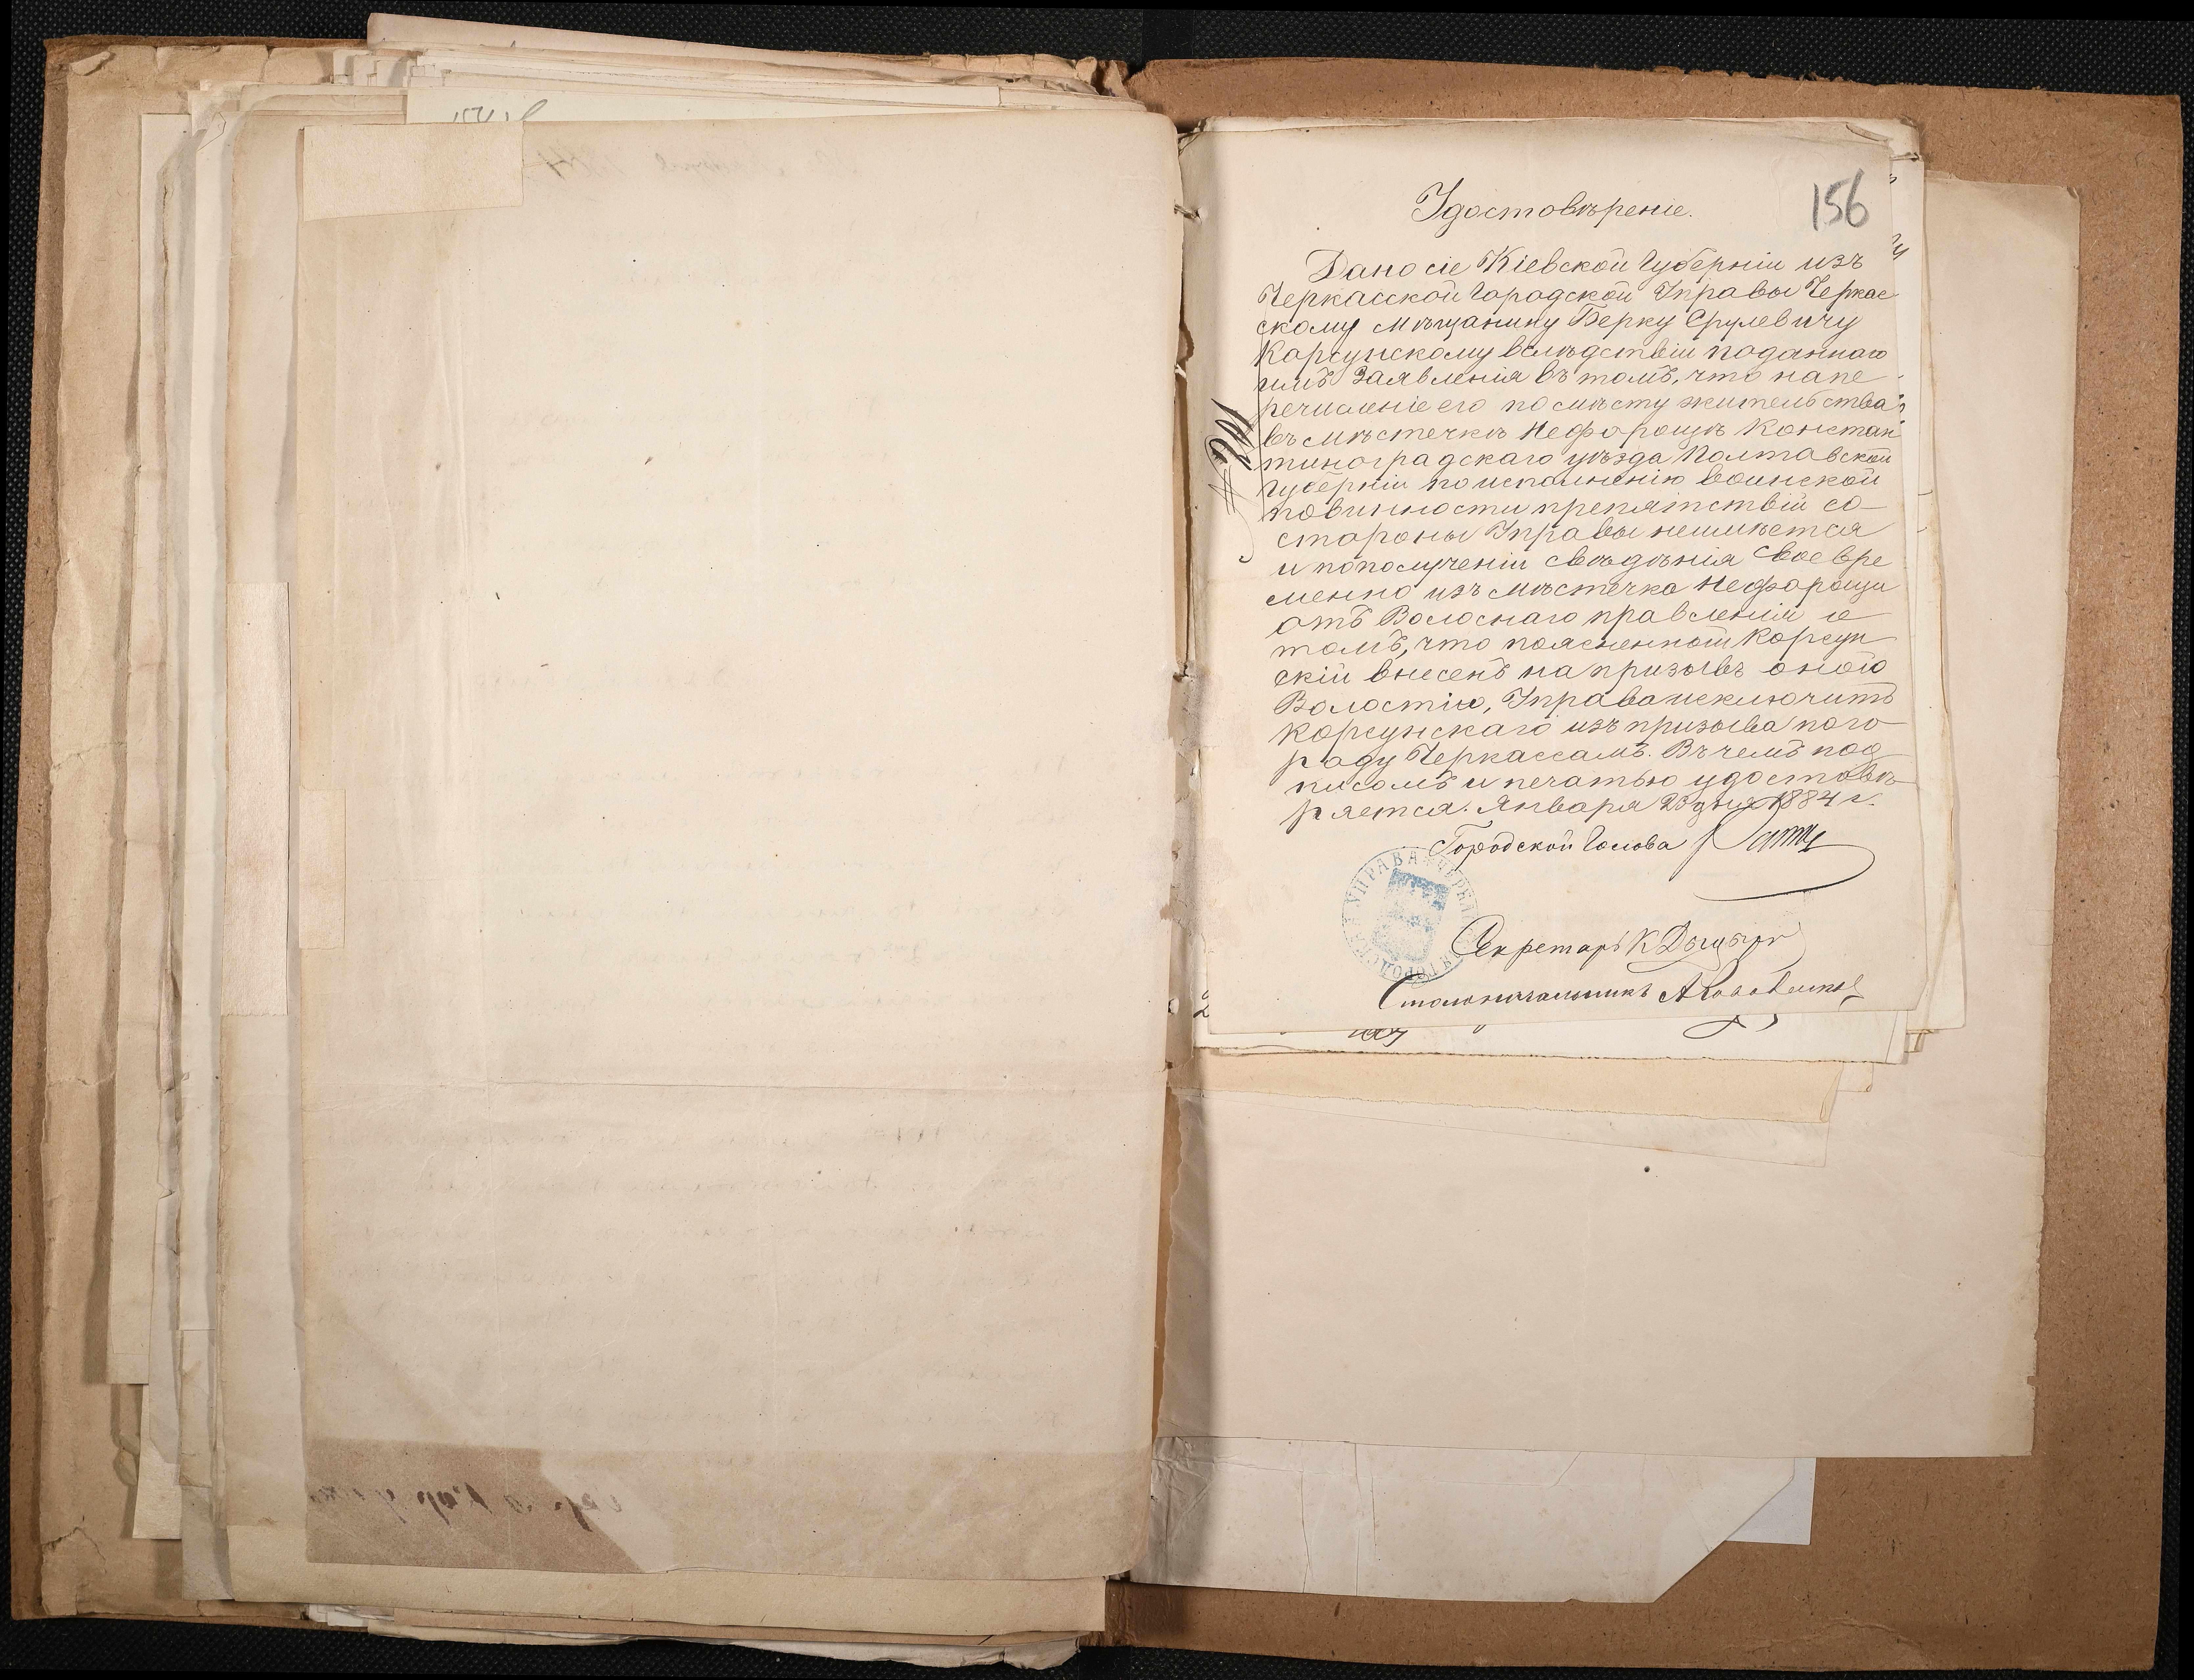 156
Удостовѣреніе.
Дано сіе Кіевской Губерніи изъ
Черкасской Городской Управы Черкас
скому мѣщанину Берку Срулевичу
Корсунскому вслѣдствіи поданнаго
имъ Заявленія въ томъ, что напе
речисленіе его по мѣсту жительства
въ мѣстечкѣ Нефорощѣ Констан
тиноградскаго уѣзда Полтавской
Губерніи по исполненію воинской
повинности препятствій со-
стороны Управы неимѣется
и пополученіи свѣдѣнія Своевре
менно изъ мѣстечка Нефорощи
отъ Волоснаго правленія о
томъ, что поясненный Корсун
скій внесенъ на призывъ оной
Волостію, Управа исключитъ
Корсунскаго изъ призыва пого
роду Черкассамъ. Въ чемъ под
писомъ и печатью удостовѣ
ряется. Января 23 дня 1884 г.
Городской Голова
УПРАВА
Секретарь К
Столоначальникъ А